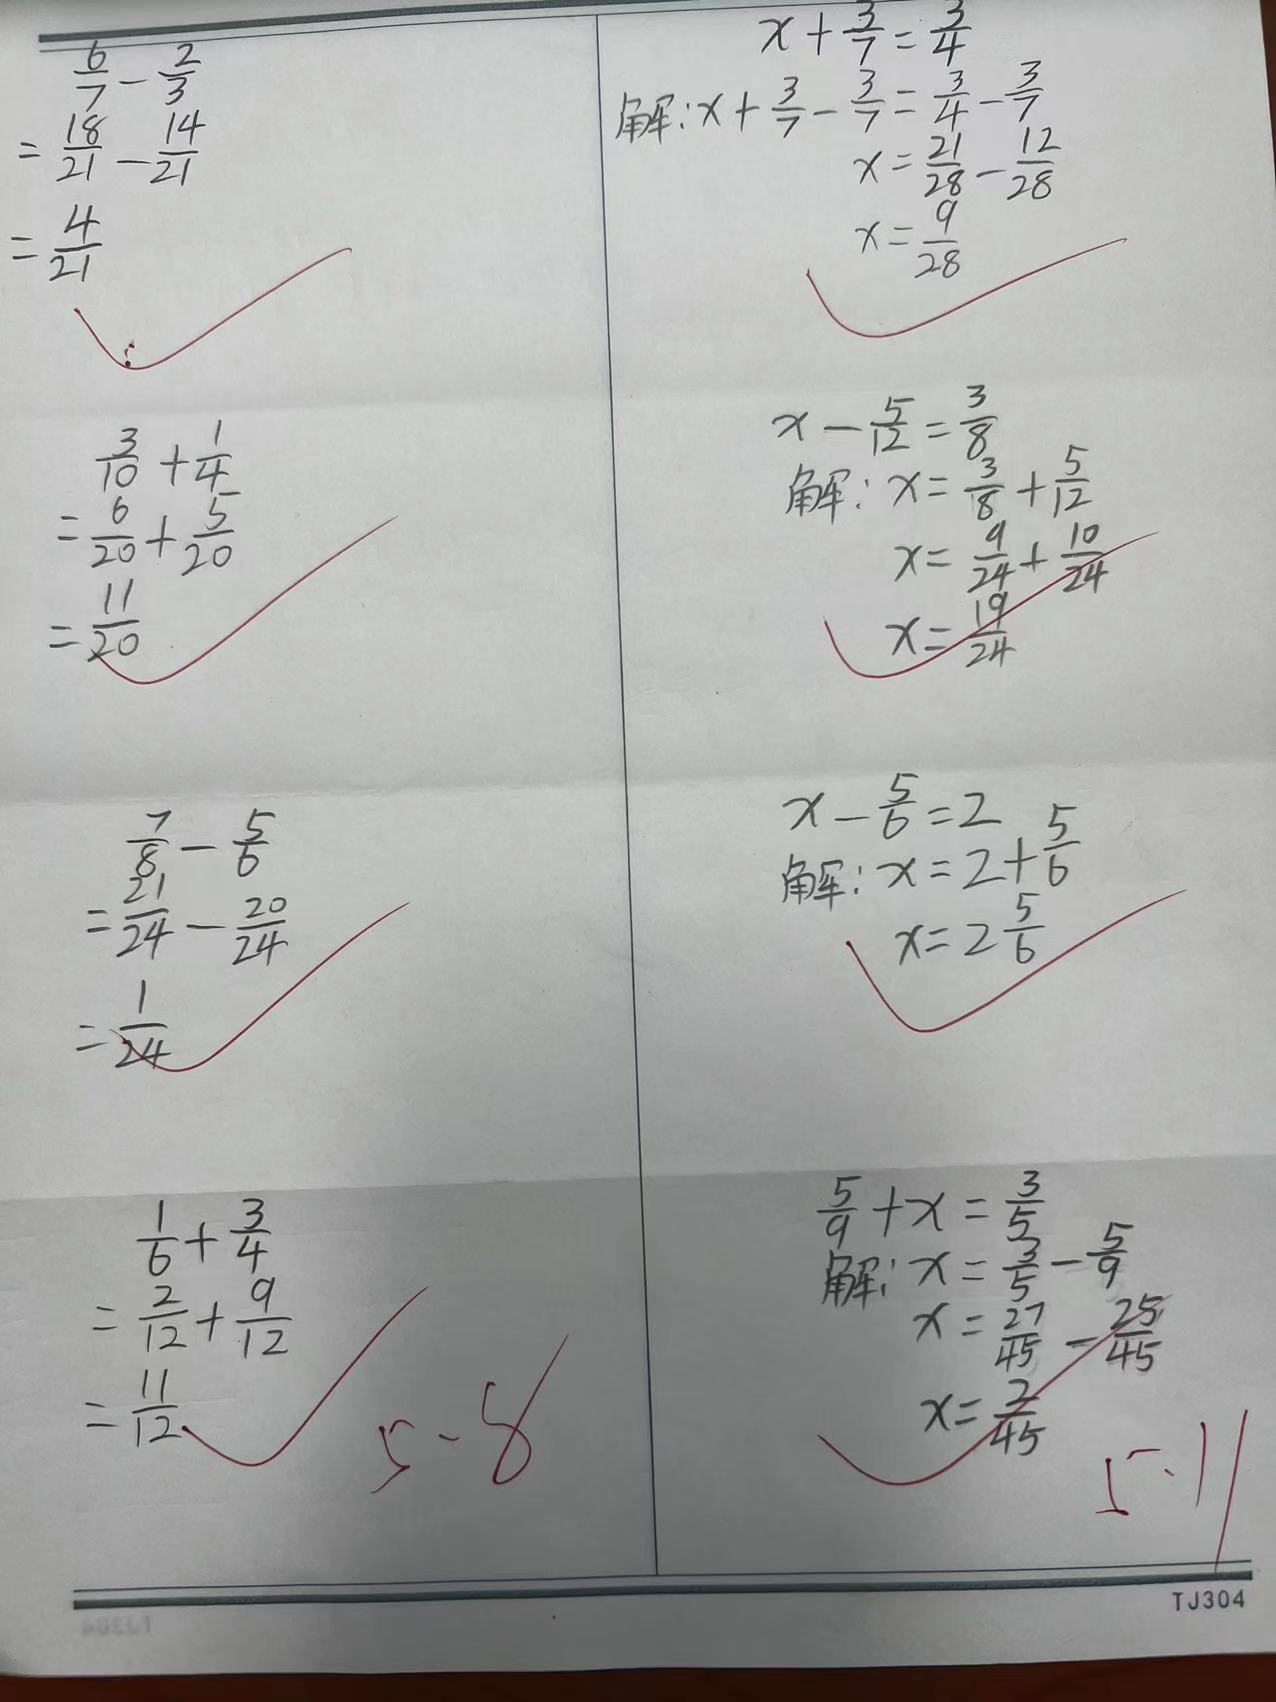 6/7 - 2/3
= 18/21 - 14/21
= 4/21
3/10 + 1/4
= 6/20 + 5/20
= 11/20
7/8 - 5/6
= 21/24 - 20/24
= 1/24
1/6 + 3/4
= 2/12 + 9/12
= 11/12
5-8
x + 3/7 = 3/4
解: x + 3/7 - 3/7 = 3/4 - 3/7
x = 21/28 - 12/28
x = 9/28
x - 5/12 = 3/8
解: x = 3/8 + 5/12
x = 9/24 + 10/24
x = 19/24
x - 5/6 = 2
解: x = 2 + 5/6
x = 2 5/6
5/9 + x = 3/5
解: x = 3/5 - 5/9
x = 27/45 - 25/45
x = 2/45
5.11
TJ304